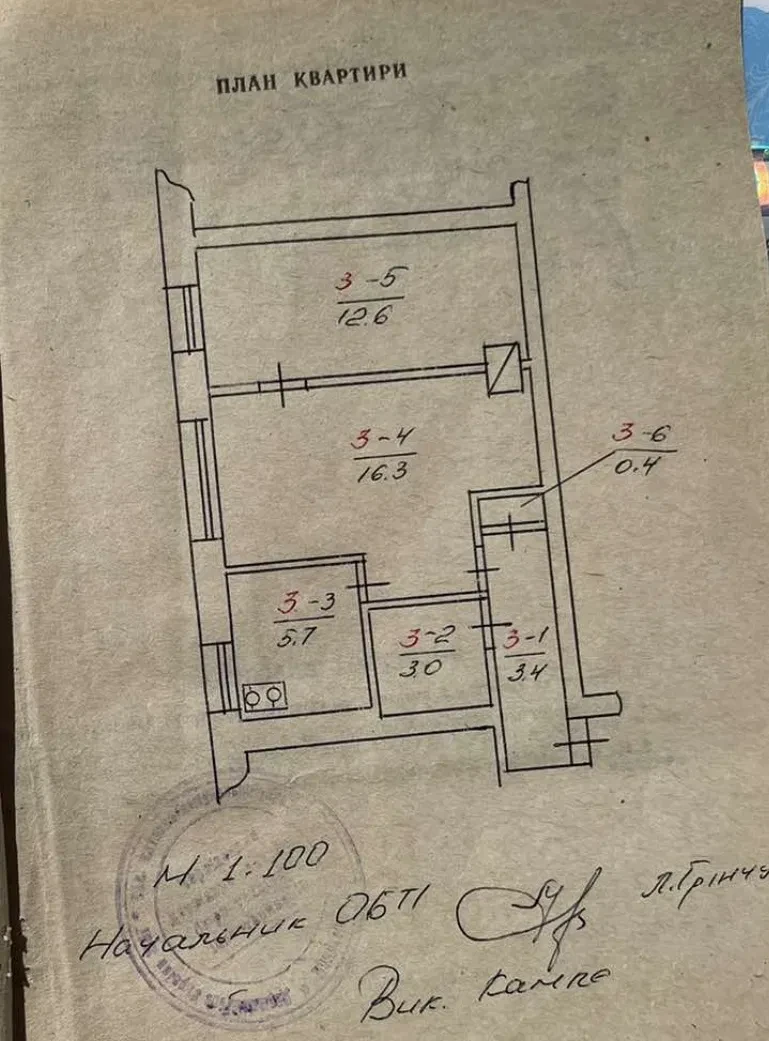 ПЛАН КВАРТИРИ
3-5
12.6
3-4
16.3
3-6
0.4
3-3
5.7
3-2
3.0
3-1
3.4
М 1:100
Начальник ОБТІ
Л.Грінчу
Вик.